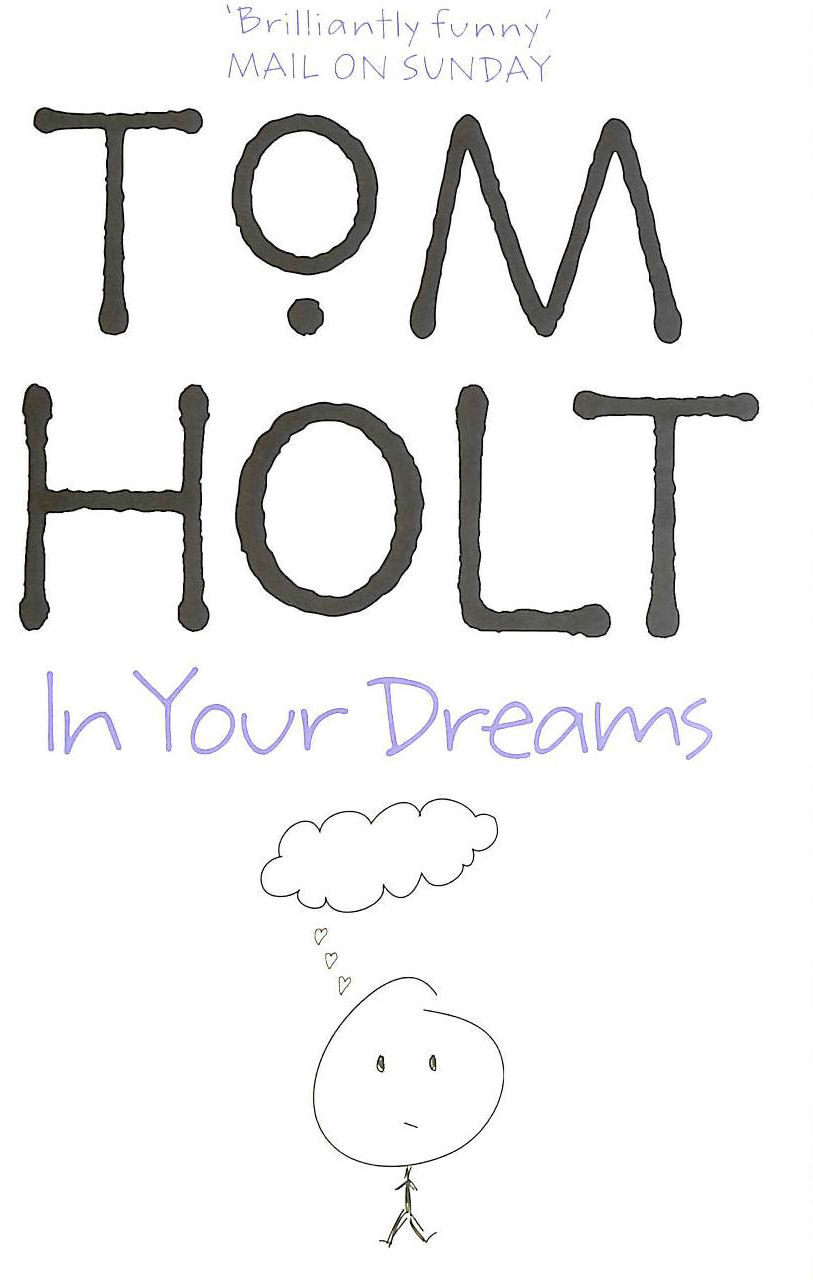 'Brilliantly funny'
MAIL ON SUNDAY
TOM
HOLT
In Your Dreams